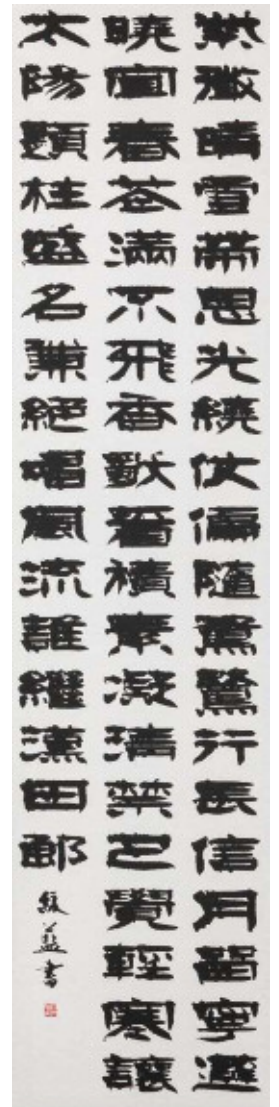 紫微晴雪帶恩光繞仗偏隨鴛鷺行長信月留寧避
曉宜春花滿不飛香獨看積素凝清禁已覺輕寒讓
太陽題柱盛名兼絕唱風流誰繼漢田郎
益書